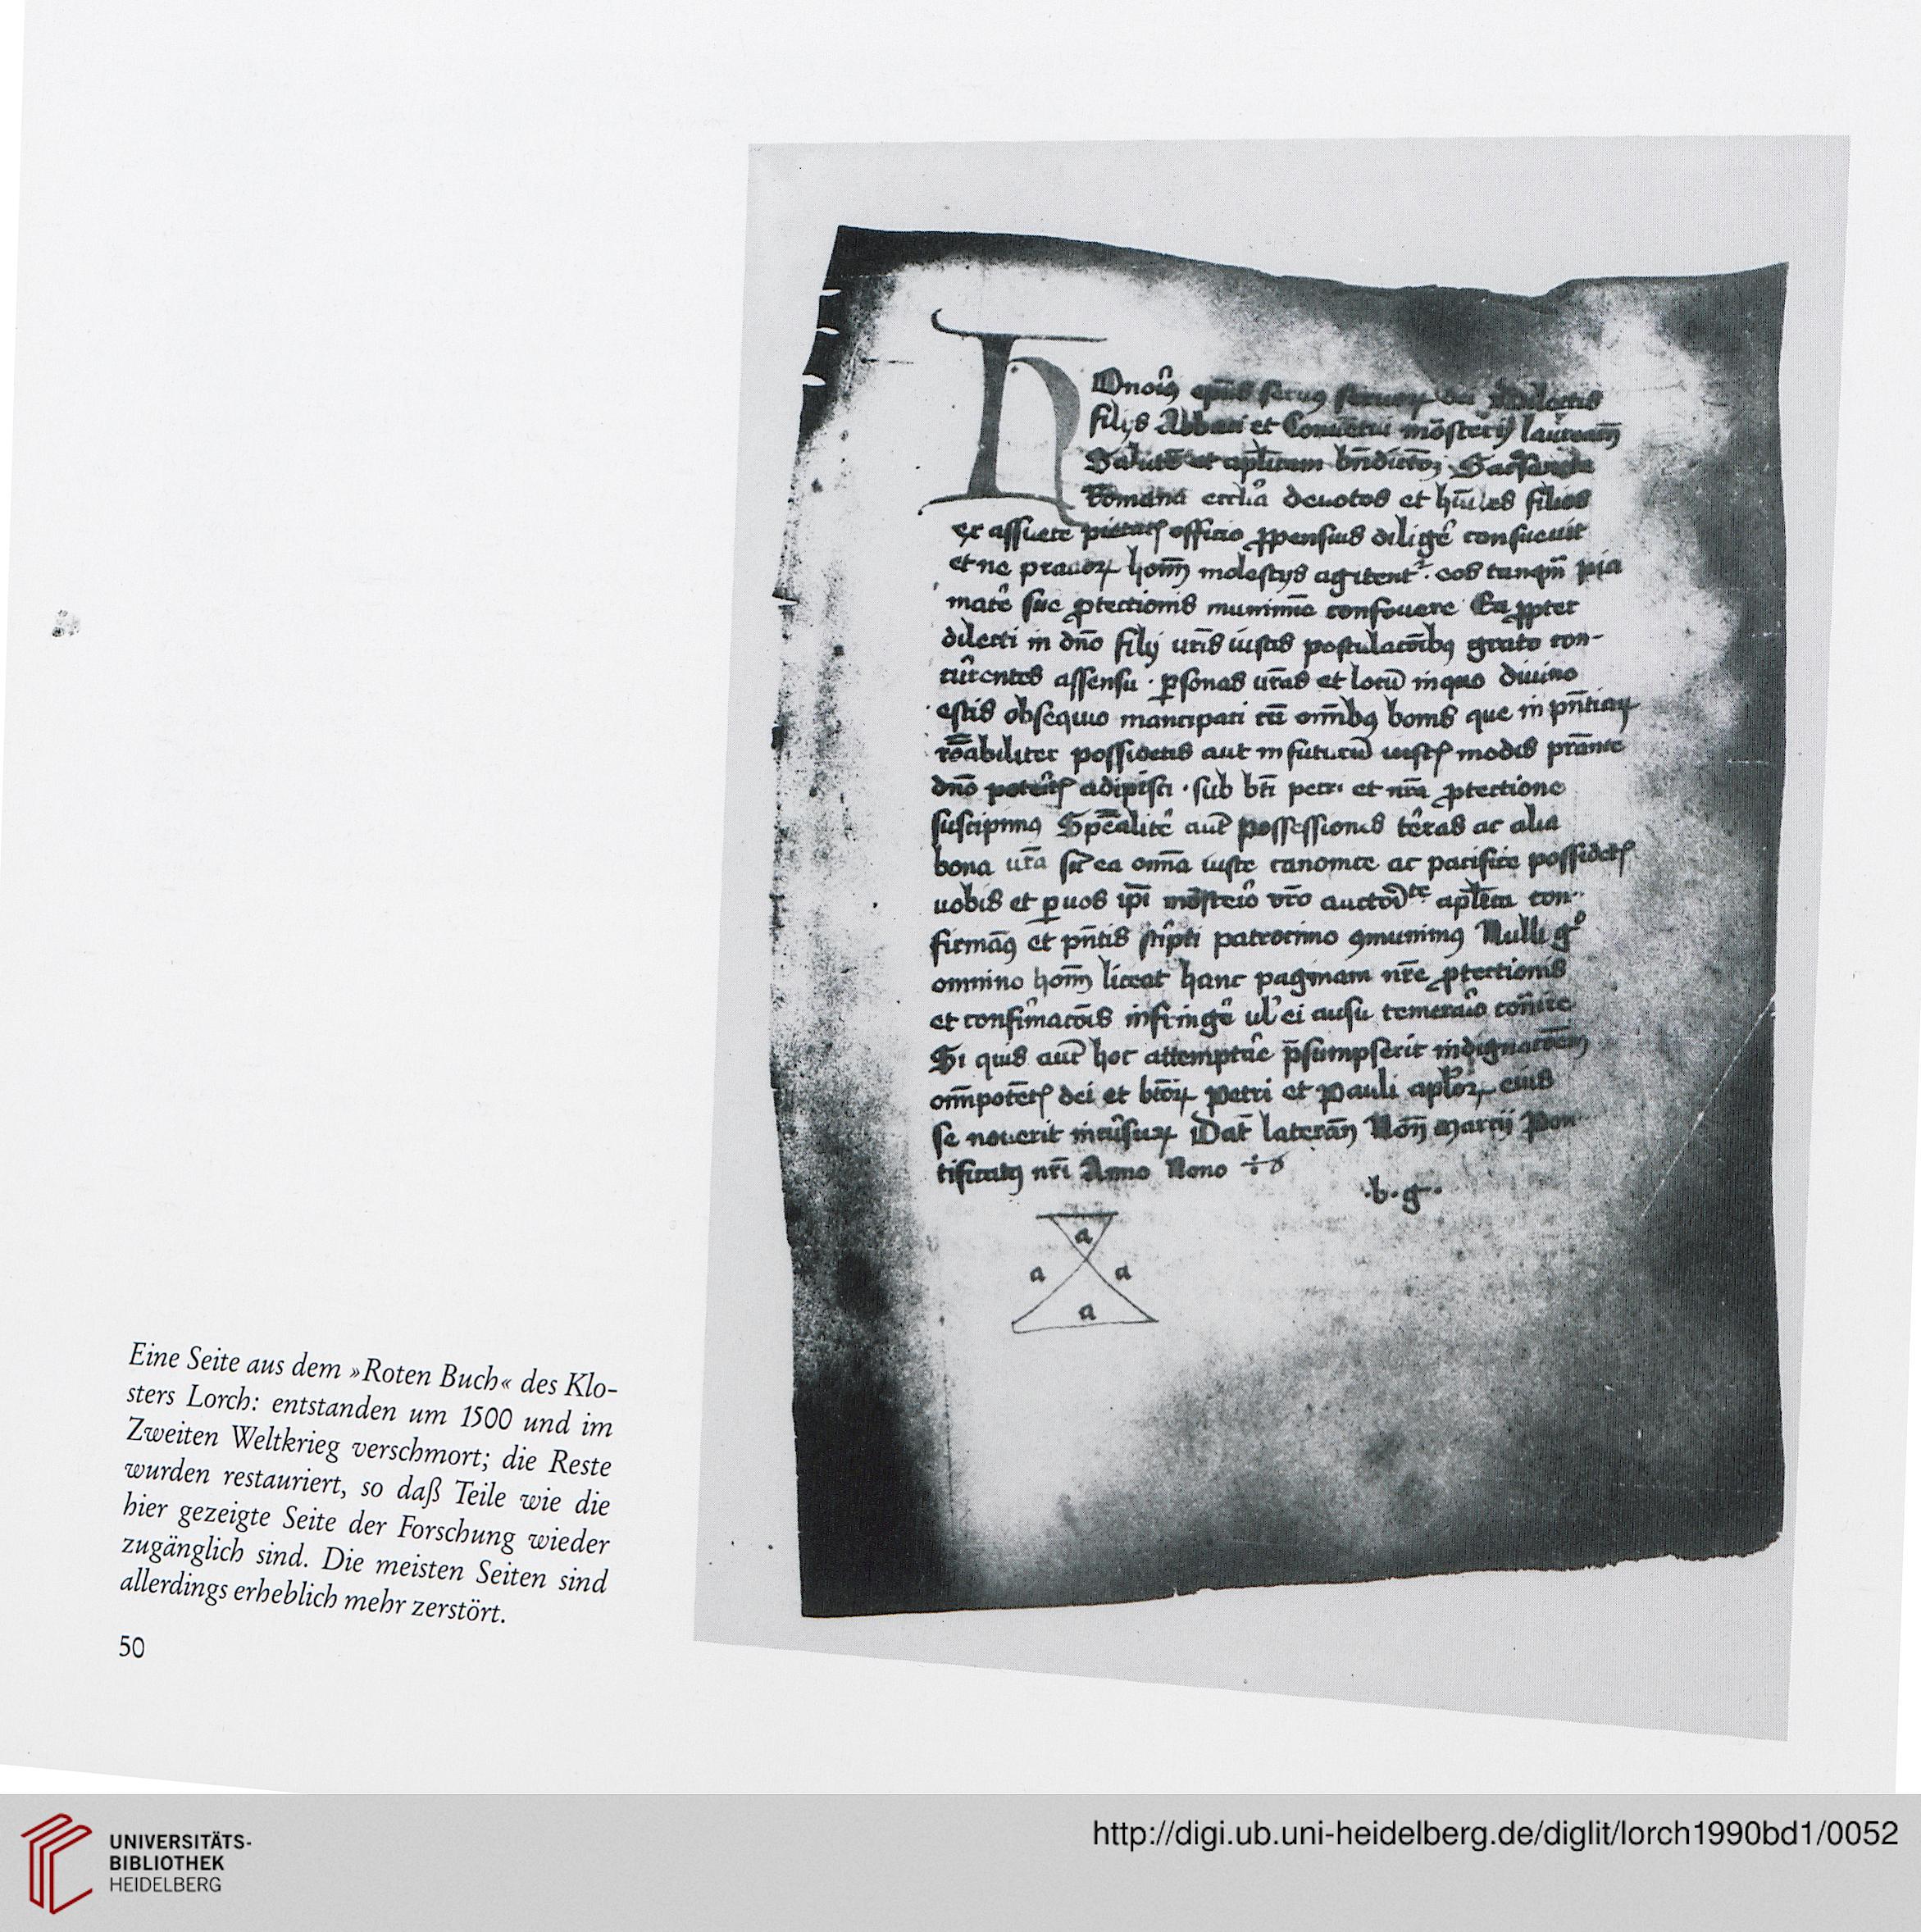 Onorius ep̄us seruus seruoꝝ dei dilectis
filijs Abbati et Conuentui mōsterij laureacen̄
Salutē et aplicam bn̄dictōꝫ Sacrosancta
Romana eccl̄ia deuotos et hūiles filios
ex assuete pietatꝭ officio ꝓpensius diligē consueuit
et ne prauoꝝ hoīm molestijs agitent᷑ eos tanqm̄ pia
matē sue ꝓtectionis munimīe confouere Ea ꝓpter
dilecti in dn̄o filij vr̄is iustis postulacōibꝯ grato con-
cūrentes assensu · ꝑsonas vr̄as et locū in quo diuino
estis obsequio mancipati cū om̄ibꝯ bonis que in pn̄tiaꝝ
rōnabiliter possidetis aut in futurū iustꝭ modis pr̄ante
dn̄o poterītꝭ adipisci · sub bt̄i petri et nr̄a ꝓtectione
suscipimꝯ Spēalitē aut̄ possessiones tēras ac alia
bona vr̄a sic̄ ea om̄ia iuste canonice ac pacifice possidetꝭ
uobis et ꝑ uos ip̄i mōsterio vr̄o auctoritte apl̄ica con-
firmamꝯ et pn̄tis sc̄pti patrocinio ꝯmunimꝯ Nulli go
omnino hoīm liceat hanc paginam nr̄e ꝓtectionis
et confirmacōis infringē ul̓ ei ausu temerario cont̄ire
Si quis aut̄ hoc attemptāe p̄sumpserit indignacōem
om̄ipotētꝭ dei et bt̄oꝝ Petri et Pauli apl̓oꝝ eius
se nouerit incursuꝝ Dat̄ laterān Non̄ Marcij Pon
tificatꝯ nr̄i Anno Nono
·b·g·
a
a a
a
Eine Seite aus dem »Roten Buch« des Klo-
sters Lorch: entstanden um 1500 und im
Zweiten Weltkrieg verschmort; die Reste
wurden restauriert, so daß Teile wie die
hier gezeigte Seite der Forschung wieder
zugänglich sind. Die meisten Seiten sind
allerdings erheblich mehr zerstört.
50
UNIVERSITÄTS-
BIBLIOTHEK
HEIDELBERG
http://digi.ub.uni-heidelberg.de/diglit/lorch1990bd1/0052